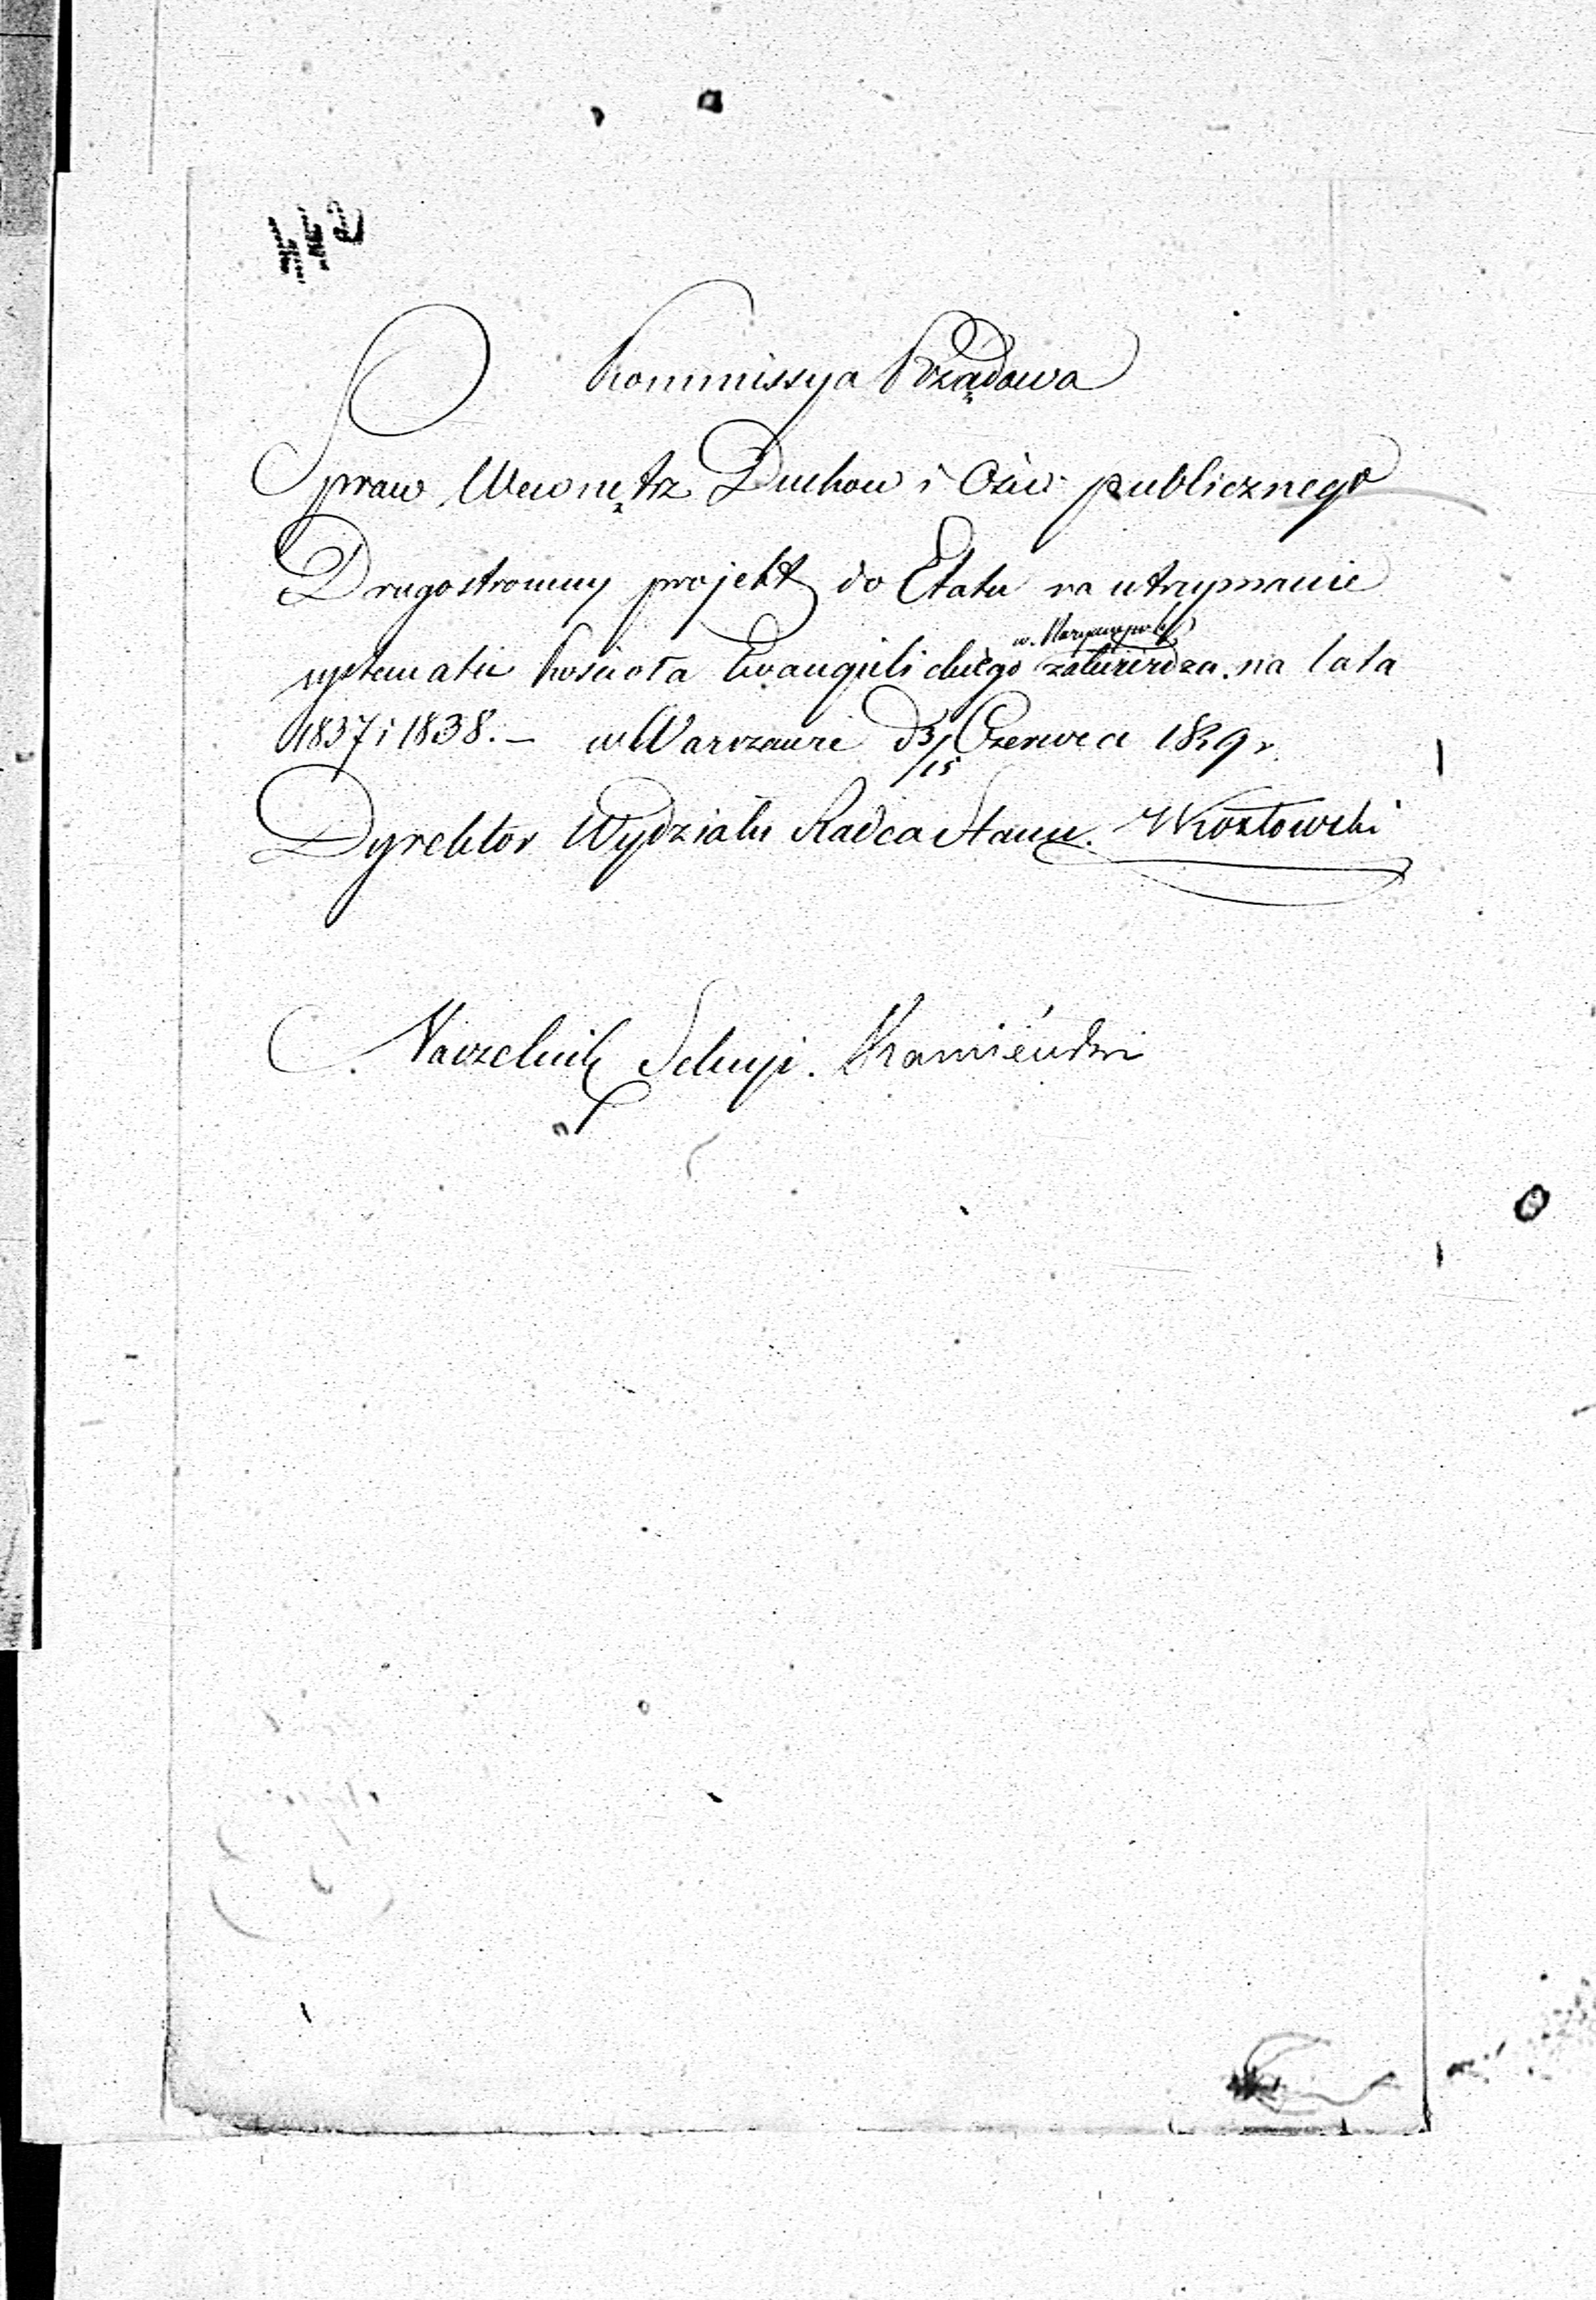 Kommissya Rządowa
Spraw Wewnętrz Duchow i Ośw publicznego
Drugostronny projekt do Etatu na utrzymanie
systematu kościoła Ewangielickiego w Maryampolu zatwierdza na lata
1837 i 1838. – w Warszawie d 3/15 Czerwca 1839 r.
Dyrektor Wydziału Radca Stanu. Kozłowski
Naczelnik Sekcyi.